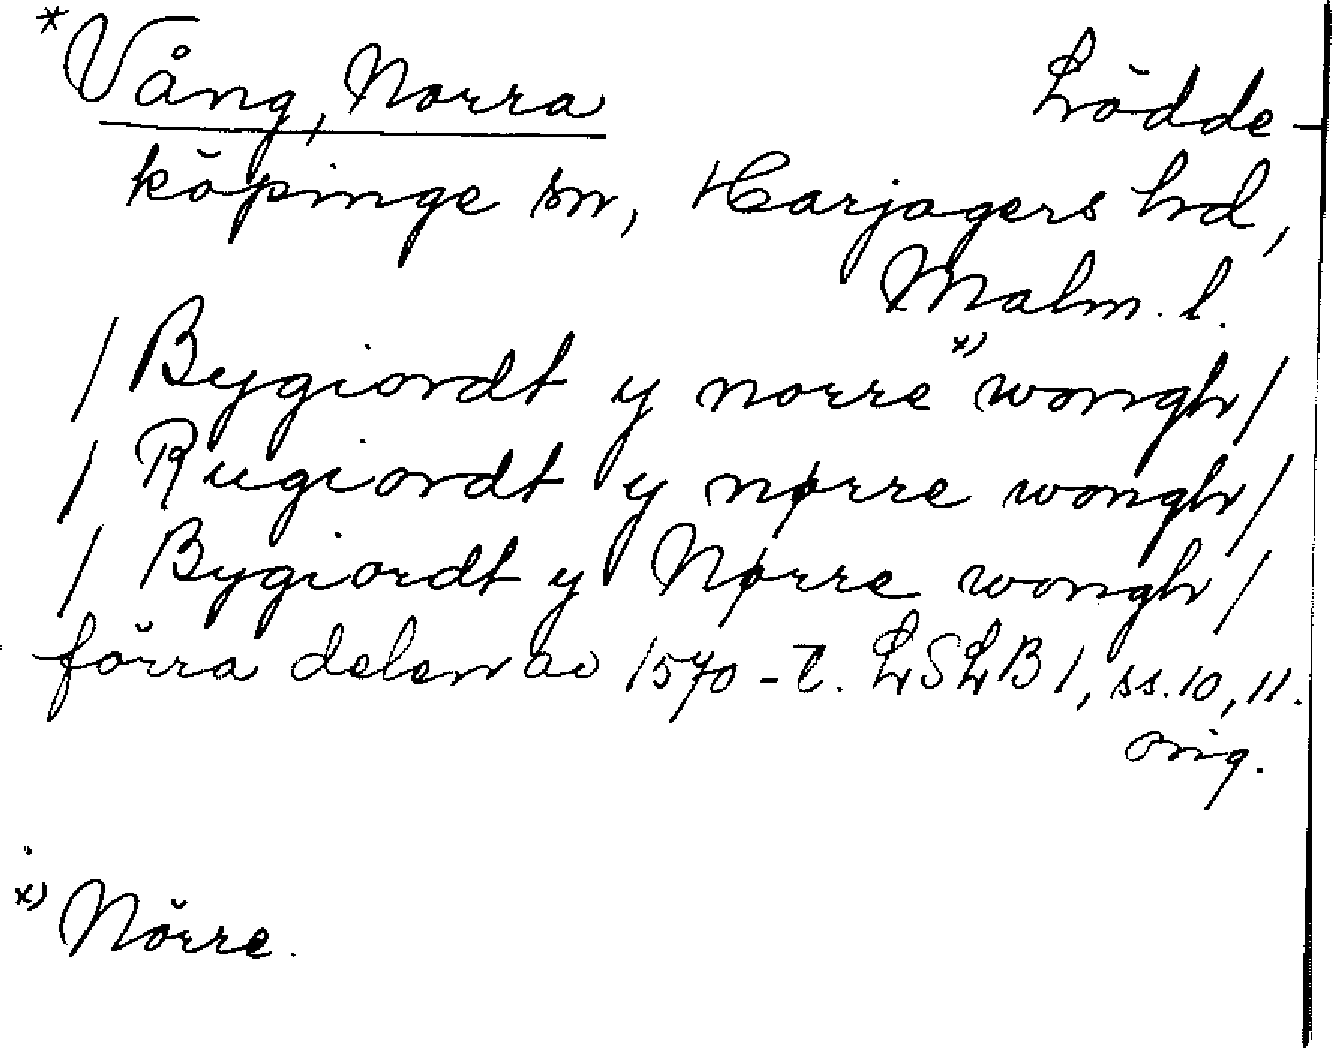 *Vång, Norra Lödde-
köpinge sn, Harjagers hd,
Malm. l.
/ Bygiordt y norre x) wongh /
/ Rugiordt y nørre wongh /
/ Bygiordt y Nørre wongh /
förra delen av 1570-t. LSLB 1, ss. 10, 11.
orig.
x) Nörre.